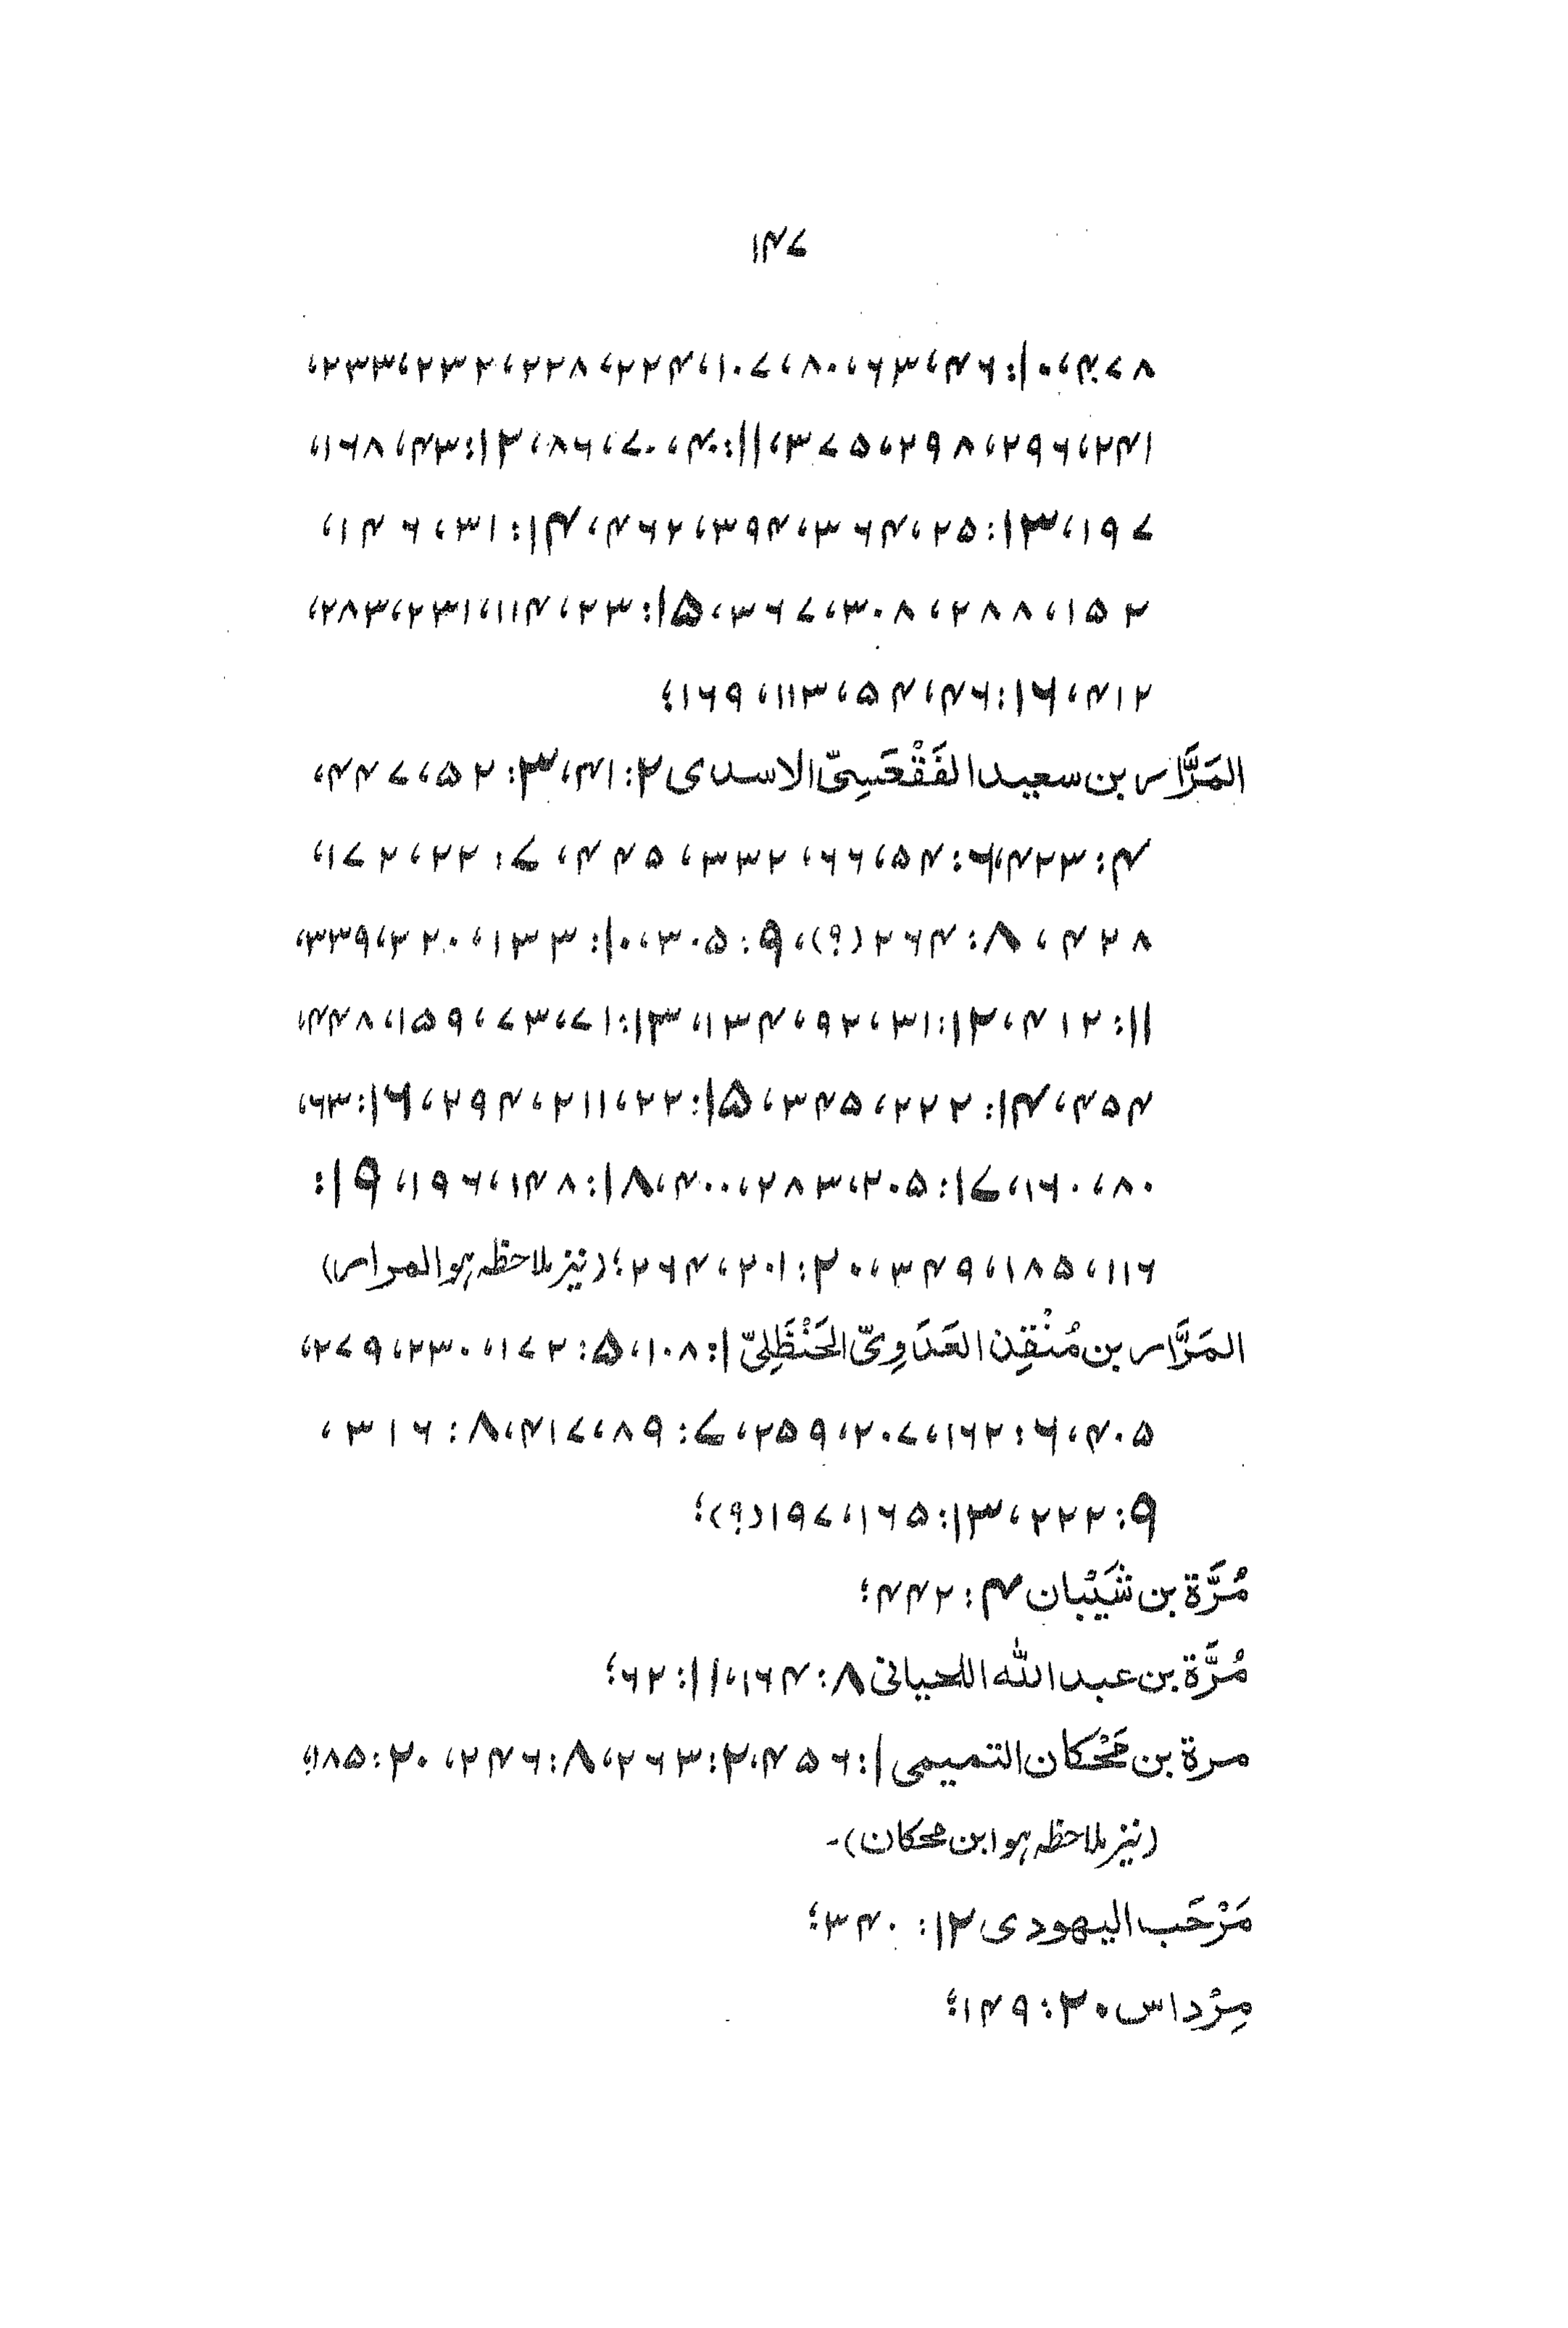 ۱۴۷
۴۷۸، ۱۰: ۴۶، ۶۳، ۸۰، ۱۰۷، ۲۲۴، ۲۲۸، ۲۳۲، ۲۳۳،
۲۴۱، ۲۹۶، ۲۹۸، ۳۷۵، ۱۱: ۴۰، ۷۰، ۸۶، ۱۲: ۴۳، ۱۶۸،
۱۹۷، ۱۳: ۲۵، ۳۶۴، ۳۹۴، ۴۶۲، ۱۴: ۳۱، ۱۴۶،
۱۵۲، ۲۸۸، ۳۰۸، ۳۶۷، ۱۵: ۲۳، ۱۱۴، ۲۳۱، ۲۸۳،
۴۱۲، ۱۶: ۴۶، ۵۴، ۱۱۳، ۱۶۹؛
المَرَّار بن سعيد الفَقْعَسِيّ الاسدى ۲: ۴۱، ۳: ۵۲، ۴۴۷،
۴: ۴۲۳، ۶: ۵۴، ۶۶، ۳۳۲، ۴۴۵، ۷: ۲۲، ۱۷۲،
۴۲۸، ۸: ۲۶۴(؟)، ۹: ۳۰۵، ۱۰: ۱۳۳، ۲۲۰، ۳۳۹،
۱۱: ۴۱۲، ۱۲: ۳۱، ۹۲، ۱۳۴، ۱۳: ۷۱، ۷۳، ۱۵۹، ۴۴۸،
۴۵۴، ۱۴: ۲۲۲، ۳۴۵، ۱۵: ۲۲، ۲۱۱، ۲۹۴، ۱۶: ۶۳،
۸۰، ۱۶۰، ۱۷: ۲۰۵، ۲۸۳، ۴۰۰، ۱۸: ۱۴۸، ۱۹۶، ۱۹:
۱۱۶، ۱۸۵، ۳۴۹، ۲۰: ۲۰۱، ۲۶۴؛ (نیز ملاحظہ ہو المرار)
المَرَّار بن مُنْقِذ العَدَوِىّ الحَنْظَلِىّ ۱: ۱۰۸، ۵: ۱۷۲، ۲۳۰، ۲۷۹،
۴۰۵، ۶: ۱۶۲، ۲۰۷، ۲۵۹، ۷: ۸۹، ۴۱۷، ۸: ۳۱۶،
۹: ۲۲۲، ۱۳: ۱۶۵، ۱۹۷(؟)؛
مُرَّة بن شَيْبان ۴: ۴۴۲؛
مُرَّة بن عبد الله اللحيانى ۸: ۱۶۴، ۱۱: ۶۲؛
مرة بن مَحْكان التميمى ۱: ۴۵۶، ۲: ۲۶۳، ۸: ۲۴۶، ۲۰: ۱۸۵؛
(نیز ملاحظہ ہو ابن محكان)۔
مَرْحَب اليهودى ۱۲: ۳۴۰؛
مِرْداس ۲۰: ۱۴۹؛